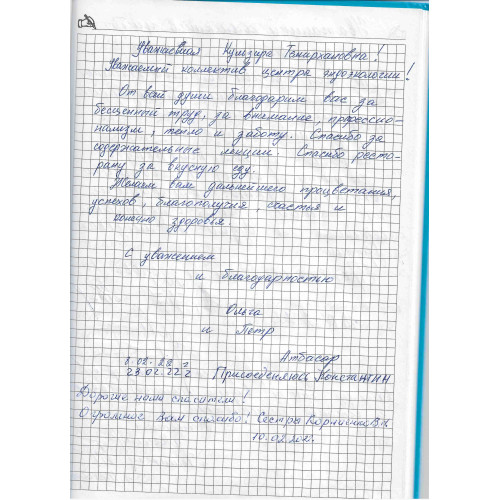 Уважаемая Кульзира Темирхановна!
Уважаемый коллектив центра эндоэкологии!
От всей души благодарим вас за
бесценный труд, за внимание, профессио-
нализм, тепло и заботу. Спасибо за
содержательные лекции. Спасибо ресто-
рану за вкусную еду.
Желаем вам дальнейшего процветания,
успехов, благополучия, счастья и
конечно здоровья.
С уважением
и благодарностью
Ольга
и Петр
Атбасар
Присоединяюсь Константин
Дорогие наши спасители!
Огромное Вам спасибо! Сестры